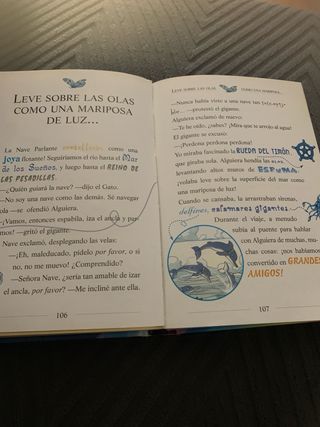 LEVE SOBRE LAS OLAS
COMO UNA MARIPOSA
DE LUZ...
La Nave Parlante centelleaba como una
Joya flotante! Seguiríamos el río hasta el Mar
de los Sueños, y luego hasta el REINO DE
LAS PESADILLAS.
—¿Quién guiará la nave? —dijo el Gato.
—No soy una nave como las demás. Sé navegar
sola —se ofendió Alguiera.
—¡Vamos, entonces espabila, iza el ancla y par-
timos! —gritó el gigante.
Nave exclamó, desplegando las velas:
—¡Eh, maleducado, pídelo por favor, o si
no, no me muevo! ¿Comprendido?
—Señora Nave, ¿sería tan amable de izar
el ancla, por favor? —Me incliné ante ella.
106
LEVE SOBRE LAS OLAS COMO UNA MARIPOSA...
—Nunca había visto a una nave tan
—protestó el gigante.
Alguiera exclamó de nuevo:
—Te he oído, ¿sabes? ¡Mira que te arrojo al agua!
El gigante se excusó:
—¡Perdona perdona perdona!
Yo miraba fascinado la RUEDA DEL TIMÓN
que giraba sola. Alguiera hendía las olas
levantando altos muros de ESPUMA.
¡volaba leve sobre la superficie del mar como
una mariposa de luz!
Cuando se cansaba, la arrastraban sirenas,
delfines, calamares gigantes...
Durante el viaje, a menudo
subía al puente para hablar
con Alguiera de muchas, mu-
chas cosas: ¡nos habíamos
convertido en GRANDES
AMIGOS!
107